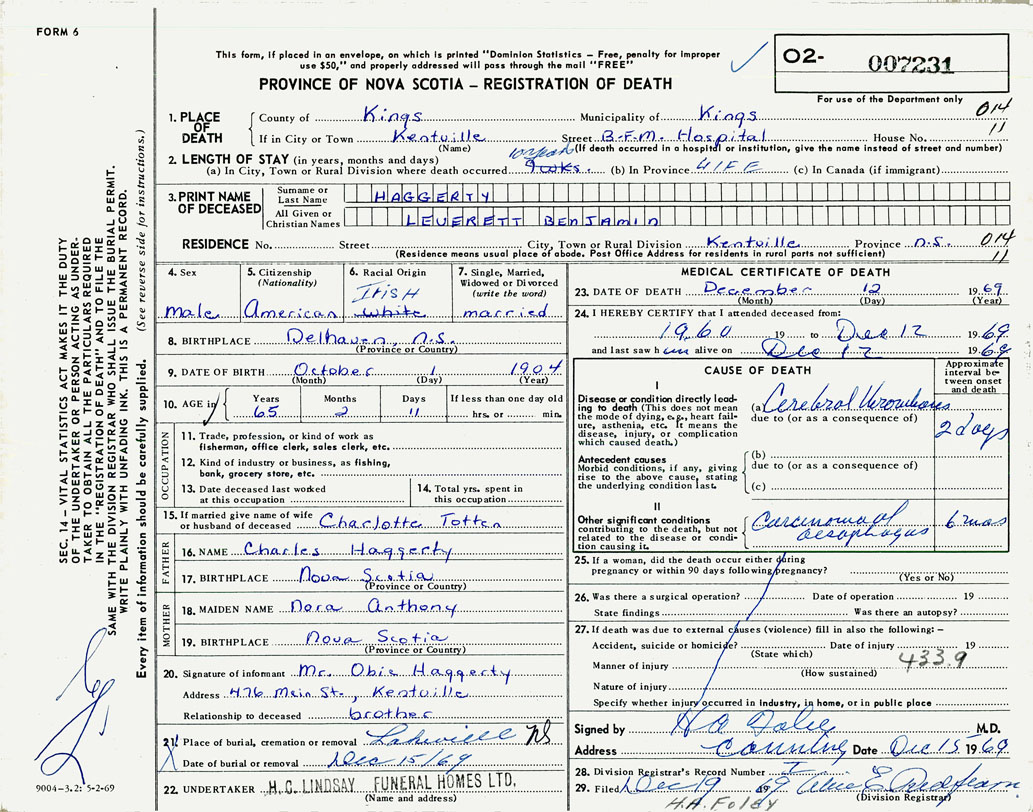 FORM 6
This form, if placed in an envelope, on which is printed "Dominion Statistics – Free, penalty for improper
use $50," and properly addressed will pass through the mail "FREE"
PROVINCE OF NOVA SCOTIA – REGISTRATION OF DEATH
02- 007231
For use of the Department only
1. PLACE OF DEATH
County of Kings Municipality of Kings 014
If in City or Town Kentville Street B.F.M. Hospital House No. 11
(Name) (If death occurred in a hospital or institution, give the name instead of street and number)
2. LENGTH OF STAY (in years, months and days)
(a) In City, Town or Rural Division where death occurred (b) In Province LIFE (c) In Canada (if immigrant)
3. PRINT NAME OF DECEASED
Surname or Last Name HAGGERTY
All Given or Christian Names LEVERETT BENJAMIN
RESIDENCE No. Street City, Town or Rural Division Kentville Province N.S. 014
11
(Residence means usual place of abode. Post Office Address for residents in rural parts not sufficient)
4. Sex
male
5. Citizenship
(Nationality)
American
6. Racial Origin
IRISH
white
7. Single, Married,
Widowed or Divorced
(write the word)
married
8. BIRTHPLACE Delhaven, N.S.
(Province or Country)
9. DATE OF BIRTH October 1 1904
(Month) (Day) (Year)
10. AGE in
Years Months Days If less than one day old
65 2 11 hrs. or min.
OCCUPATION
11. Trade, profession, or kind of work as
fisherman, office clerk, sales clerk, etc.
12. Kind of industry or business, as fishing,
bank, grocery store, etc.
13. Date deceased last worked
at this occupation
14. Total yrs. spent in
this occupation
15. If married give name of wife
or husband of deceased Charlotte Totten
FATHER
16. NAME Charles Haggerty
17. BIRTHPLACE Nova Scotia
(Province or Country)
MOTHER
18. MAIDEN NAME Nora Anthony
19. BIRTHPLACE Nova Scotia
(Province or Country)
20. Signature of informant Mr. Obie Haggerty
Address 476 Main St., Kentville
Relationship to deceased brother
21. Place of burial, cremation or removal Lakeville NS
Date of burial or removal Dec 15/69
22. UNDERTAKER H. C. LINDSAY FUNERAL HOMES LTD.
(Name and address)
MEDICAL CERTIFICATE OF DEATH
23. DATE OF DEATH December 12 1969
(Month) (Day) (Year)
24. I HEREBY CERTIFY that I attended deceased from:
1960 19 to Dec 12 1969
and last saw him alive on Dec 12 1969
CAUSE OF DEATH
Approximate
interval be-
tween onset
and death
I
Disease or condition directly lead-
ing to death (This does not mean
the mode of dying, e.g., heart fail-
ure, asthenia, etc. It means the
disease, injury, or complication
which caused death.)
(a) Cerebral thrombosis
due to (or as a consequence of)
2 days
Antecedent causes
Morbid conditions, if any, giving
rise to the above cause, stating
the underlying condition last.
(b)
due to (or as a consequence of)
(c)
II
Other significant conditions
contributing to the death, but not
related to the disease or condi-
tion causing it.
Carcinoma of
oesophagus
6 mos
25. If a woman, did the death occur either during
pregnancy or within 90 days following pregnancy?
(Yes or No)
26. Was there a surgical operation? Date of operation 19
State findings Was there an autopsy?
27. If death was due to external causes (violence) fill in also the following: –
Accident, suicide or homicide? Date of injury 19
(State which)
Manner of injury 433.9
(How sustained)
Nature of injury
Specify whether injury occurred in Industry, in home, or in public place
Signed by M.D.
Address Canning Date Dec 15 1969
28. Division Registrar's Record Number
29. Filed Dec 19 69
(Division Registrar)
H.A. FOLEY
SEC. 14 – VITAL STATISTICS ACT MAKES IT THE DUTY
OF THE UNDERTAKER OR PERSON ACTING AS UNDER-
TAKER TO OBTAIN ALL THE PARTICULARS REQUIRED
IN THE "REGISTRATION OF DEATH" AND TO FILE THE
SAME WITH THE DIVISION REGISTRAR WHO SHALL ISSUE THE BURIAL PERMIT.
WRITE PLAINLY WITH UNFADING INK. THIS IS A PERMANENT RECORD.
Every item of information should be carefully supplied. (See reverse side for instructions.)
9004-3.2: 5-2-69